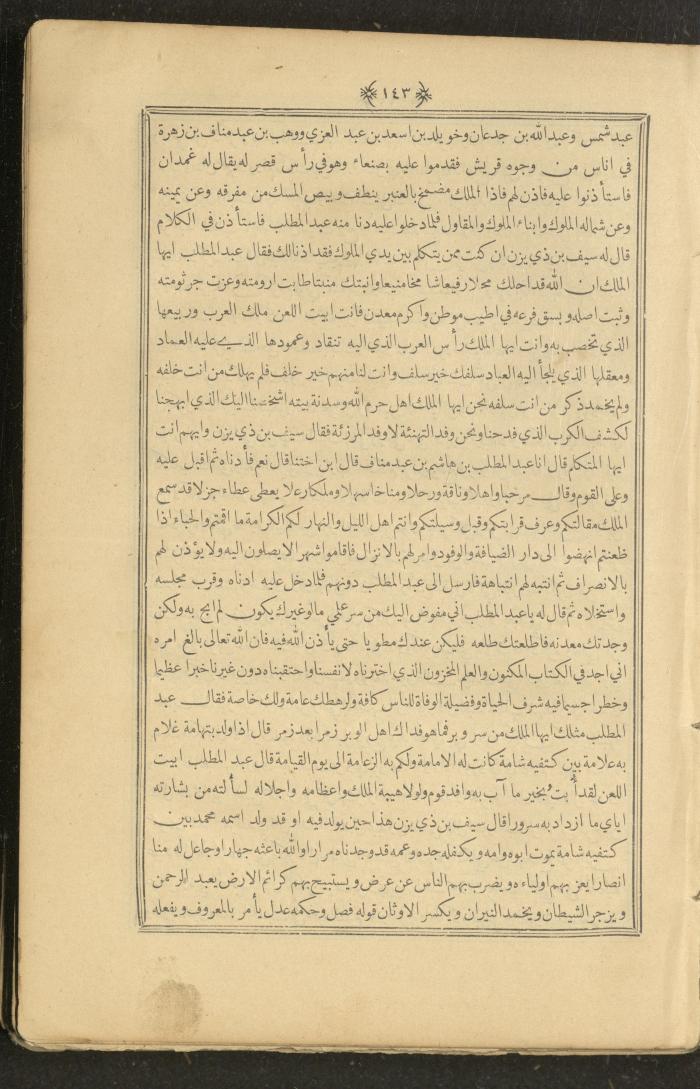 ١٤٣
عبد شمس وعبد الله بن جدعان وخويلد بن اسعد بن عبد العزي ووهب بن عبد مناف بن زهرة
في اناس من وجوه قريش فقدموا عليه بصنعاء وهو في رأس قصر له يقال له غمدان
فاستأذنوا عليه فاذن لهم فاذا الملك مضمخ بالعنبر ينطف وبيص المسك من مفرقه وعن يمينه
وعن شماله الملوك وابناء الملوك والمقاول فلما دخلوا عليه دنا منه عبد المطلب فاستأذن في الكلام
قال له سيف بن ذي يزن ان كنت ممن يتكلم بين يدي الملوك فقد اذنا لك فقال عبد المطلب ايها
الملك ان الله قد احلك محلا رفيعا شامخا منيعا وانبتك منبتا طابت ارومته وعزت جرثومته
وثبت اصله وبسق فرعه في اطيب موطن واكرم معدن فانت ابيت اللعن ملك العرب وربيعها
الذي تخصب به وانت ايها الملك رأس العرب الذي اليه تنقاد وعمودها الذي عليه العماد
ومعقلها الذي يلجأ اليه العباد سلفك خير سلف وانت لنا منهم خير خلف فلم يهلك من انت خلفه
ولم يخمد ذكر من انت سلفه نحن ايها الملك اهل حرم الله وسدنة بيته اشخصنا اليك الذي ابهجنا
لكشف الكرب الذي فدحنا ونحن وفد التهنئة لا وفد المرزئة فقال سيف بن ذي يزن وايهم انت
ايها المتكلم قال انا عبد المطلب بن هاشم بن عبد مناف قال ابن اختنا قال نعم فأدناه ثم اقبل عليه
وعلى القوم وقال مرحبا واهلا وناقة ورحلا ومناخا سهلا وملكا رعلا يعطى عطاء جزلا قد سمع
الملك مقالتكم وعرف قرابتكم وقبل وسيلتكم وانتم اهل الليل والنهار لكم الكرامة ما اقمتم والحباء اذا
ظعنتم انهضوا الى دار الضيافة والوفود وامر لهم بالانزال فاقاموا شهرا لا يصلون اليه ولا يؤذن لهم
بالانصراف ثم انتبه لهم انتباهة فارسل الى عبد المطلب دونهم فلما دخل عليه ادناه وقرب مجلسه
واستخلاه ثم قال له يا عبد المطلب اني مفوض اليك من سر علمي ما لو غيرك يكون لم ابح به ولكن
وجدتك معدنه فاطلعتك طلعه فليكن عندك مطويا حتى يأذن الله فيه فان الله تعالى بالغ امره
اني اجد في الكتاب المكنون والعلم المخزون الذي اخترناه لانفسنا واحتقبناه دون غيرنا خبرا عظيما
وخطرا جسيما فيه شرف الحياة وفضيلة الوفاة للناس كافة ولرهطك عامة ولك خاصة فقال عبد
المطلب مثلك ايها الملك من سر وبر فما هو فداك اهل الوبر زمرا بعد زمر قال اذا ولد بتهامة غلام
به علامة بين كتفيه شامة كانت له الامامة ولكم به الزعامة الى يوم القيامة قال عبد المطلب ابيت
اللعن لقد أُبت بخير ما آب به وافد قوم ولولا هيبة الملك واعظامه واجلاله لسألته من بشارته
اياي ما ازداد به سرورا قال سيف بن ذي يزن هذا حين يولد فيه او قد ولد اسمه محمد بين
كتفيه شامة يموت ابوه وامه ويكفله جده وعمه قد وجدناه مرارا والله باعثه جهارا وجاعل له منا
انصارا يعز بهم اولياءه ويضرب بهم الناس عن عرض ويستبيح بهم كرائم الارض يعبد الرحمن
ويزجر الشيطان ويخمد النيران ويكسر الاوثان قوله فصل وحكمه عدل يأمر بالمعروف ويفعله